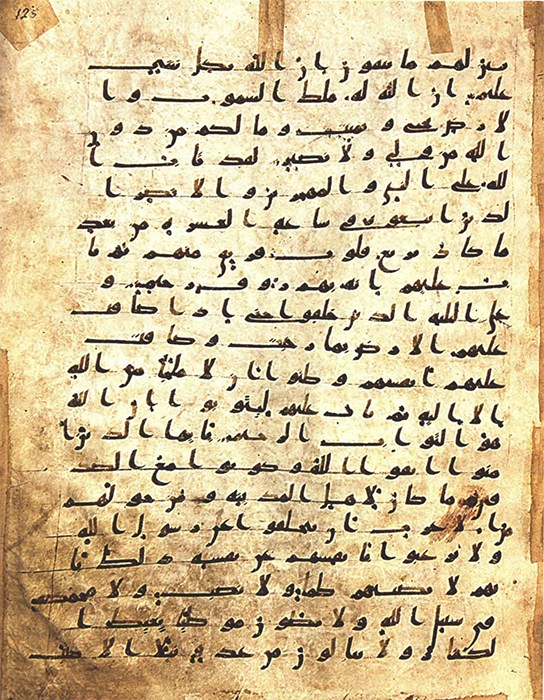 125
يبين لهم ما يتقون ان الله بكل شي
عليم ان الله له ملك السموت و ا
لارض يحي و يميت و ما لكم من دو ن
الله من ولي و لا نصير لقد تاب ا
لله على النبي و المهجرين و الا نصر ا
لذين اتبعوه في ساعه العسره من بعد
ما كاد يزيغ قلوب فريق منهم ثم تا
ب عليهم انه بهم روف رحيم و
على الثلثه الذين خلفوا حتى اذا ضاقت
عليهم الارض بما رحبت و ضاقت
عليهم انفسهم و ظنوا ان لا ملجا من الله
الا اليه ثم تاب عليهم ليتوبوا ان الله
هو التواب الرحيم يايها الذين ا
منوا اتقوا الله و كونوا مع الصد
قين ما كان لاهل المدينه و من حولهم
من الاعراب ان يتخلفوا عن رسول الله
و لا يرغبوا بانفسهم عن نفسه ذلك با
نهم لا يصيبهم ظما و لا نصب و لا مخمصه
في سبيل الله و لا يطون موطيا يغيظ ا
لكفار و لا ينالون من عدو نيلا الا كتب